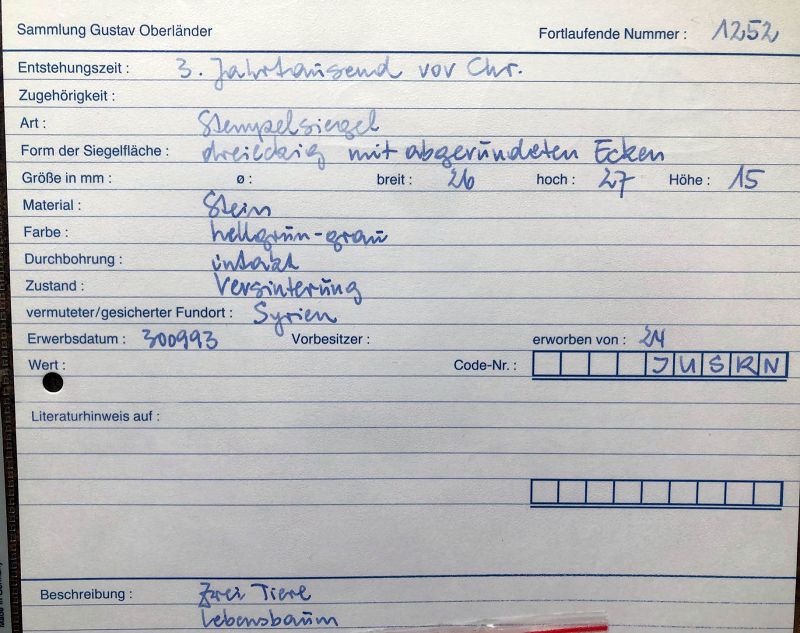 Sammlung Gustav Oberländer Fortlaufende Nummer : 1252
Entstehungszeit : 3. Jahrtausend vor Chr.
Zugehörigkeit :
Art : Stempelsiegel
Form der Siegelfläche : dreieckig mit abgerundeten Ecken
Größe in mm : ø : breit : 26 hoch : 27 Höhe : 15
Material : Stein
Farbe : hellgrün-grau
Durchbohrung : intakt
Zustand : Versinterung
vermuteter/gesicherter Fundort : Syrien
Erwerbsdatum : 300993 Vorbesitzer : erworben von :
Wert : Code-Nr. : J U S R N
Literaturhinweis auf :
Beschreibung : Zwei Tiere
Lebensbaum